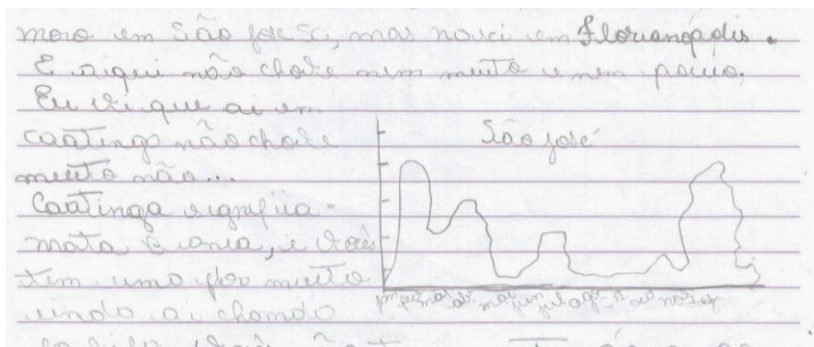 moro em São José SC, mas nasci em Florianópolis.
E aqui não chove nem muito e nem pouco,
Eu vi que ai em
caatinga não chove
São José
muito não...
Caatinga significa
mata branca, e vocês
tem uma flor muito
linda ai chamda
jan fev mar abr mai jun jul ago set out nov dez